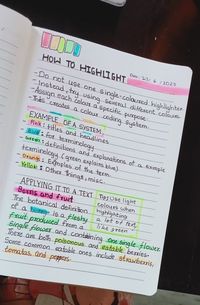 HOW TO HIGHLIGHT
- Do not use one single-coloured highlighter
- Instead, try using several different colours
- Assign each colour a specific purpose
- This creates a colour coding system.
EXAMPLE OF A SYSTEM
- Pink: Titles and headlines
- Blue: for terminology
- Green: definitions and explanations of a
terminology (green explains blue)
- Orange: Examples of the term
- Yellow: Other things, misc.
APPLYING IT TO A TEXT
Berries and fruit
The botanical definition
of a berry is a fleshy
fruit produced from a
single flower and containing one single flower.
There are both poisonous and edible berries.
Some common edible ones include strawberries,
tomatoes and peppers.
Tip: Use light
colours when
highlighting
a lot of text,
like green